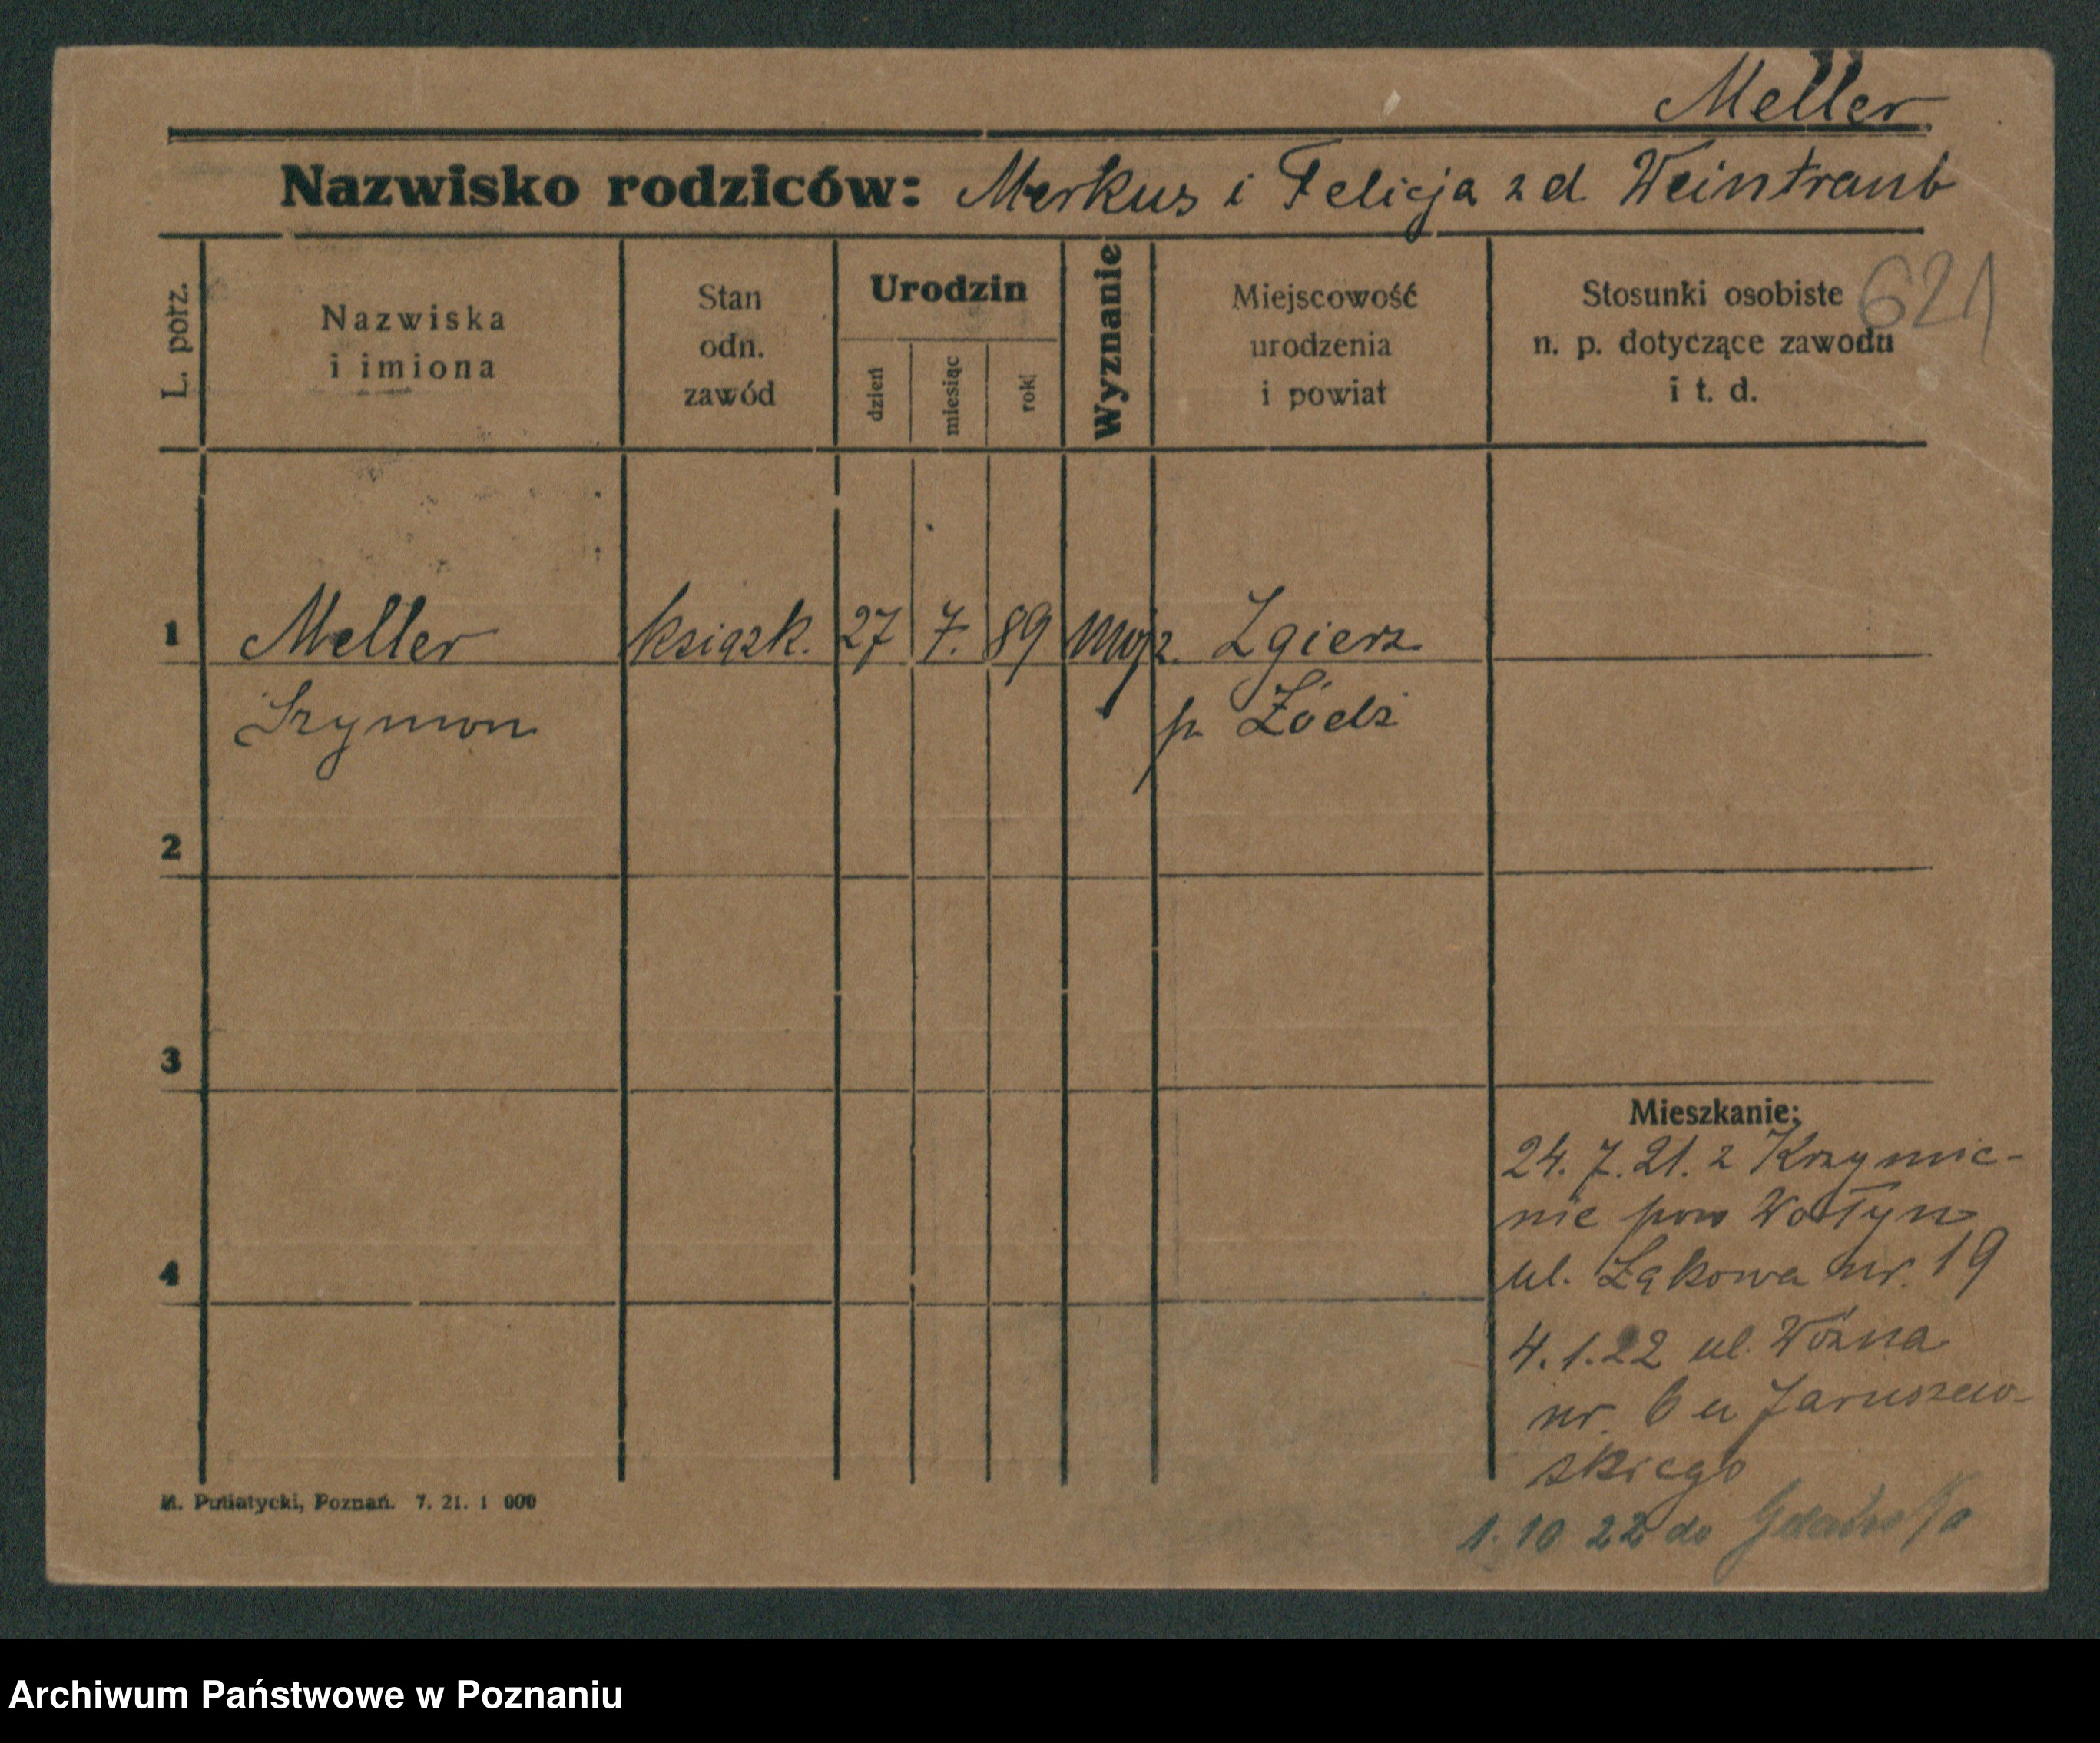 Meller
Nazwisko rodziców: Merkus i Felicja z d Weintraub
L. porz.
Nazwiska
i imiona
Stan
odn.
zawód
Urodzin
dzień
miesiąc
rok
Wyznanie
Miejscowość
urodzenia
i powiat
Stosunki osobiste
n. p. dotyczące zawodu
i t. d.
621
1 Meller książk. 27 7. 89 mojż. Zgierz
Szymon p. Łódź
2
3
4
Mieszkanie:
24. 7. 21. z Krzymie-
nie pow Wołyn
ul. Łąkowa nr. 19
4. 1. 22 ul. Woźna
nr. 6 u Jaruszew-
skiego
1. 10 22 do Gdańska
M. Putiatycki, Poznań. 7. 21. 1 000
Archiwum Państwowe w Poznaniu